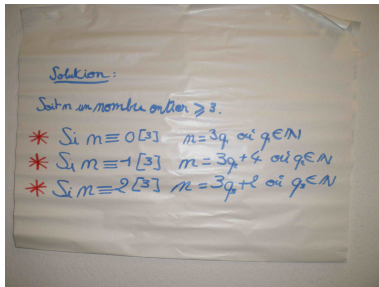 Solution :
Soit n un nombre entier ⩾ 3.
* Si n ≡ 0 [3] n = 3q où q ∈ ℕ
* Si n ≡ 1 [3] n = 3q + 4 où q ∈ ℕ
* Si n ≡ 2 [3] n = 3q + 2 où q ∈ ℕ